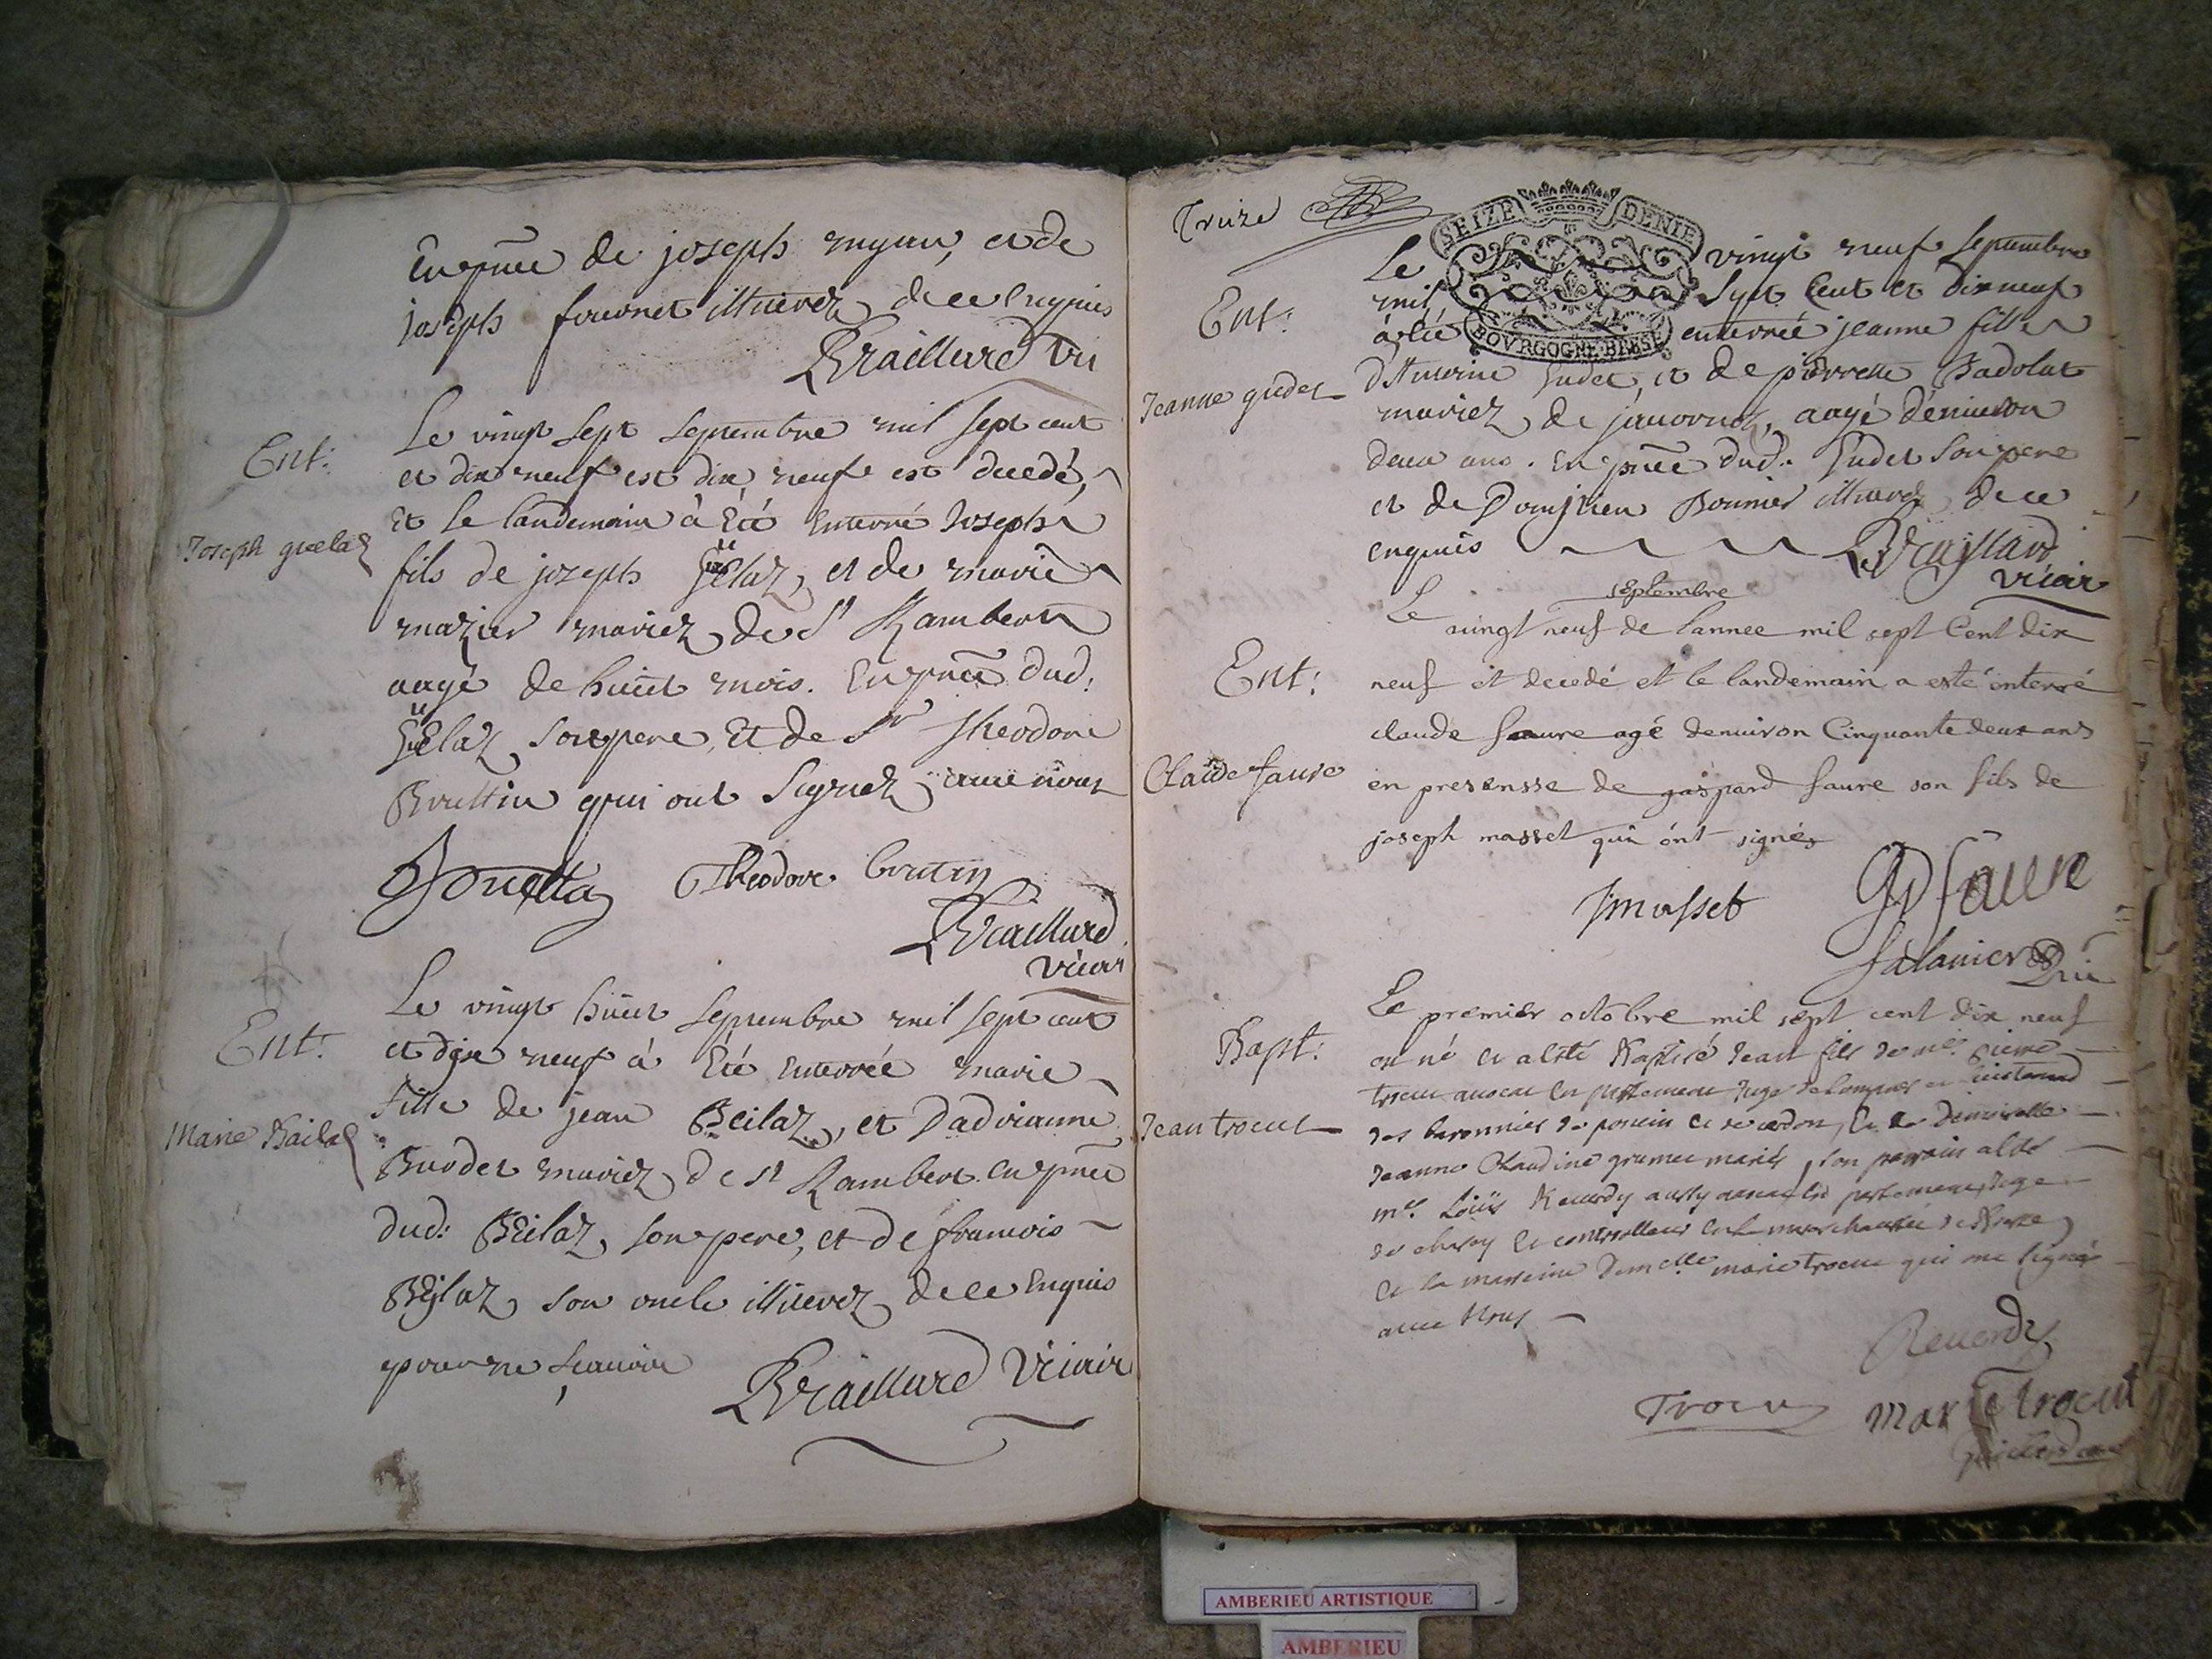 En pñce de joseph mgnu, et de
joseph fournet illiterez de ce enquis
Braillard vic
Ent:
Joseph guelaz
Le vingt sept septembre mil sept cent
et dix neuf est dix neuf est decedé,
Et le landemain à été enterré Joseph
fils de joseph Güelaz, et de marie
mazier mariez de St Rambert
aagé de huict mois. En pñce dud:
Güelaz son pere, Et de Sr Theodore
Bruttin qui ont signez avec nous
Theodore brutin
Braillard
vicair
Ent:
Marie Bailaz
Le vingt huict septembre mil sept cent
et dix neuf à été enterrée marie
fille de jean Beilaz, et Dadrianne
Burdet mariez de St Rambert en pñce
dud: Beilaz, son pere, et de francois
Beylaz son oncle illiterez de ce enquis
pour ne scauoir
Braillard vicair
Treize
SEIZE DENIE
BOVRGOGNE BRESSE
Ent:
Jeanne gudet
Le vingt neuf septembre
mil sept Cent et dix neuf
à été enterrée jeanne fille
d'Antoine Gudet, et de pierrette Badolat
mariez de jauornoz, aagé d'énuiron
deux ans. En pñce dud: Gudet son pere
et de Donjtien Bonnier illiterez de ce
enquis Braillard
vicair
septembre
Ent:
Claude faure
Le vingt neuf de lannee mil sept Cent dix
neuf et decedé et le landemain a esté enterré
claude faure agé denuiron Cinquante deux ans
en presensse de gaspard faure son fils de
joseph masset qui ont signés
J masset
G faure
Bapt:
Jean trocut
Le premier octobre mil sept cent dix neuf
est né et a esté Baptisé Jean fils de mre pierre
trocu auocat en parlement Juge de
des baronnies de poncin et de cerdon, et de Demoiselle
Jeanne Claudine grumet mariés, son parrain a esté
mre Loüis Reuerdy aussy auocat en parlement, Juge
de et controlleur en la mareschaussée de Bresse
et la marreine Demelle marie trocu qui ont signés
auec Nous
Reuerdy
Trocu Marie Trocut
AMBERIEU ARTISTIQUE
AMBERIEU